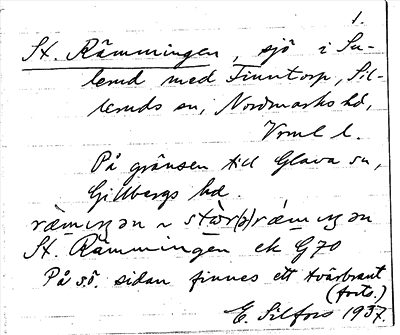 1.
St. Rämmingen, sjö i Su-
lerud med Finntorp, Sil-
leruds sn, Nordmarks hd,
Vrml l.
På gränsen till Glava sn,
Gillbergs hd.
St. Rämmingen ek G70
På sö. sidan finnes ett tvärbrant
(forts.)
E. Silfors 1937.